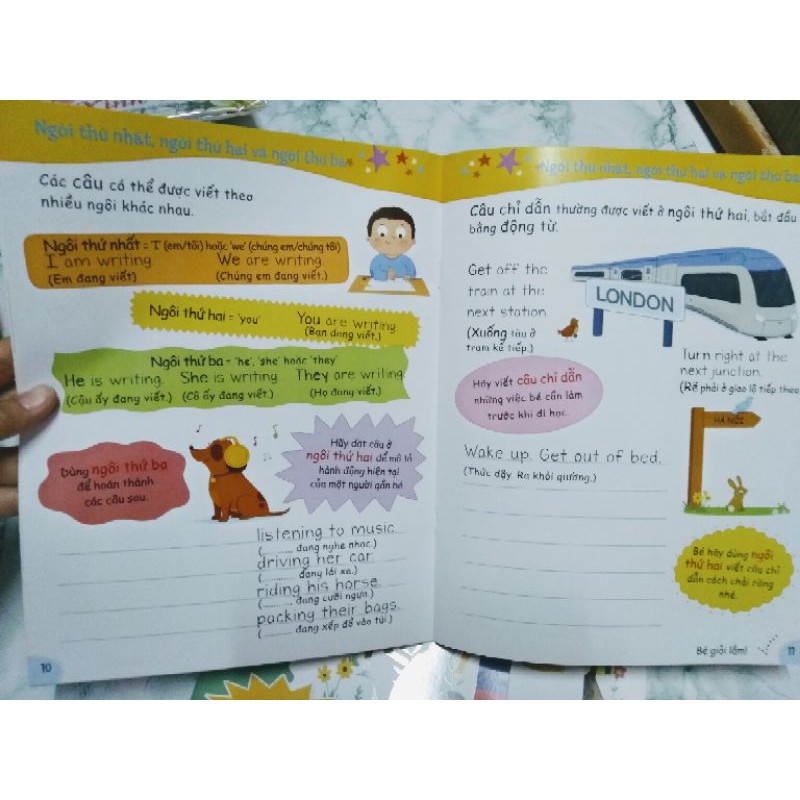 Ngôi thứ nhất, ngôi thứ hai và ngôi thứ ba
Các câu có thể được viết theo
nhiều ngôi khác nhau.
Ngôi thứ nhất = 'I' (em/tôi) hoặc 'we' (chúng em/chúng tôi)
I am writing. We are writing.
(Em đang viết) (Chúng em đang viết.)
Ngôi thứ hai = 'you' You are writing
(Bạn đang viết.)
Ngôi thứ ba = 'he', 'she' hoặc 'they'
He is writing. She is writing. They are writing.
(Cậu ấy đang viết.) (Cô ấy đang viết.) (Họ đang viết.)
Dùng ngôi thứ ba
để hoàn thành
các câu sau.
Hãy đặt câu ở
ngôi thứ hai để mô tả
hành động hiện tại
của một người gần bé.
listening to music.
(...... đang nghe nhạc.)
driving her car.
(...... đang lái xe.)
riding his horse.
(...... đang cưỡi ngựa.)
packing their bags.
(...... đang xếp đồ vào túi.)
10
Ngôi thứ nhất, ngôi thứ hai và ngôi thứ ba
Câu chỉ dẫn thường được viết ở ngôi thứ hai, bắt đầu
bằng động từ.
Get off the
train at the
next station.
(Xuống tàu ở
trạm kế tiếp.)
LONDON
Turn right at the
next junction.
(Rẽ phải ở giao lộ tiếp theo
HÀ NỘI
Hãy viết câu chỉ dẫn
những việc bé cần làm
trước khi đi học.
Wake up. Get out of bed.
(Thức dậy. Ra khỏi giường.)
Bé hãy dùng ngôi
thứ hai viết câu chỉ
dẫn cách chải răng
nhé.
Bé giỏi lắm!
11